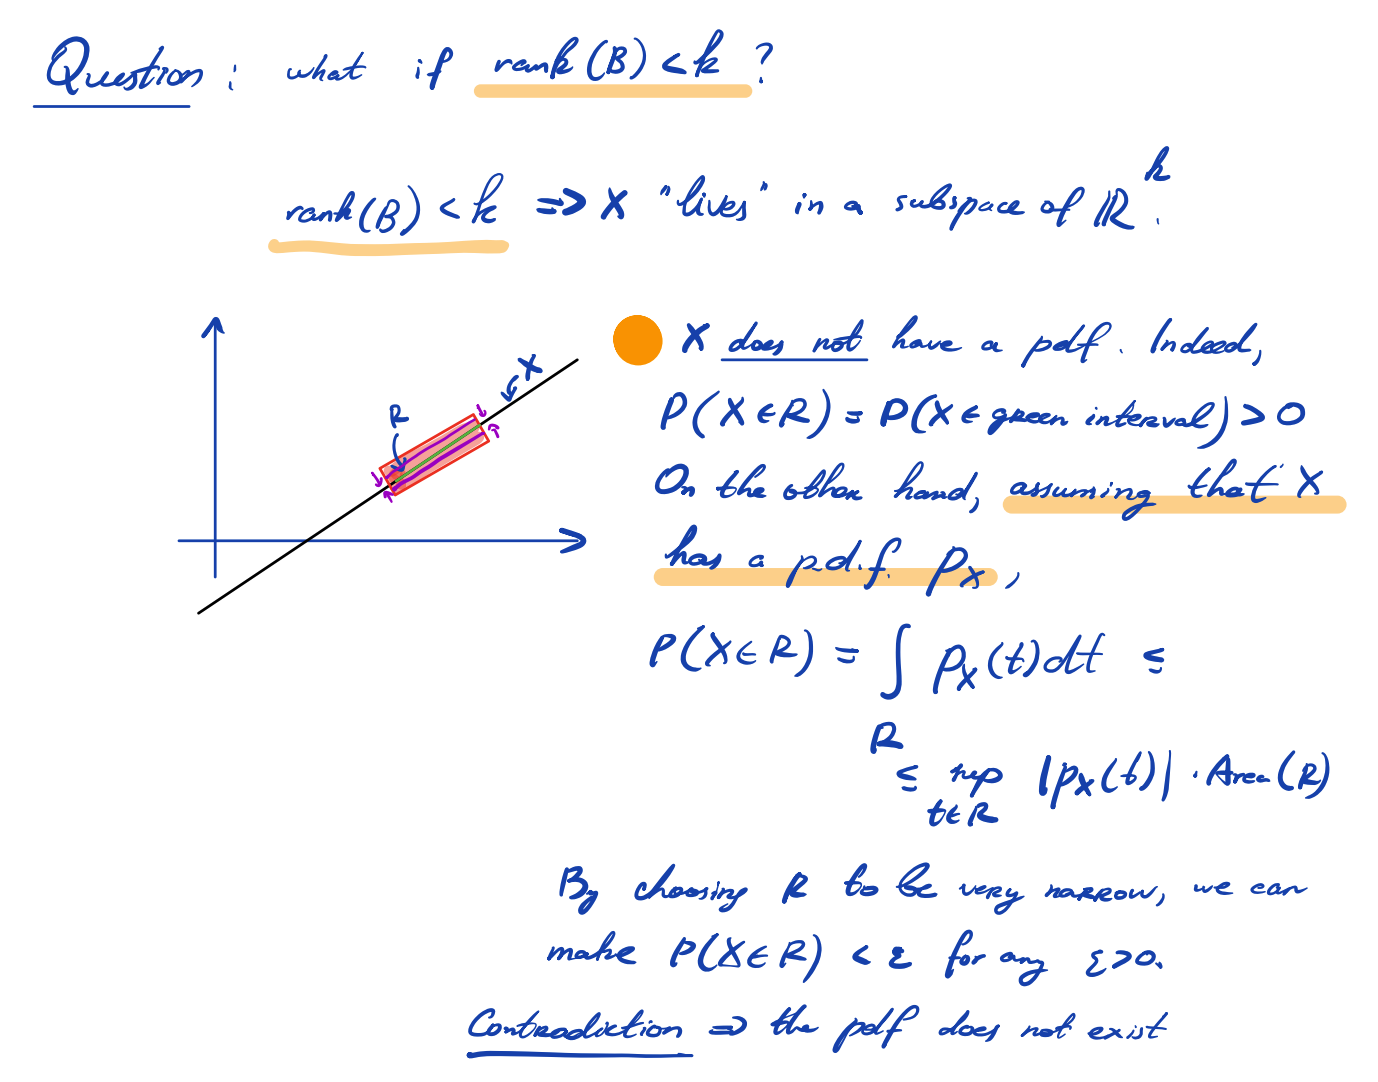 Question: what if rank(B) < k ?
rank(B) < k ⇒ X "lives" in a subspace of ℝ^k.
X
R
X does not have a pdf. Indeed,
P(X ∈ R) = P(X ∈ green interval) > 0
On the other hand, assuming that X
has a p.d.f. p_X,
P(X ∈ R) = ∫_R p_X(t)dt ≤
≤ sup_{t∈R} |p_X(t)| · Area(R)
By choosing R to be very narrow, we can
make P(X ∈ R) < ε for any ε > 0.
Contradiction ⇒ the pdf does not exist